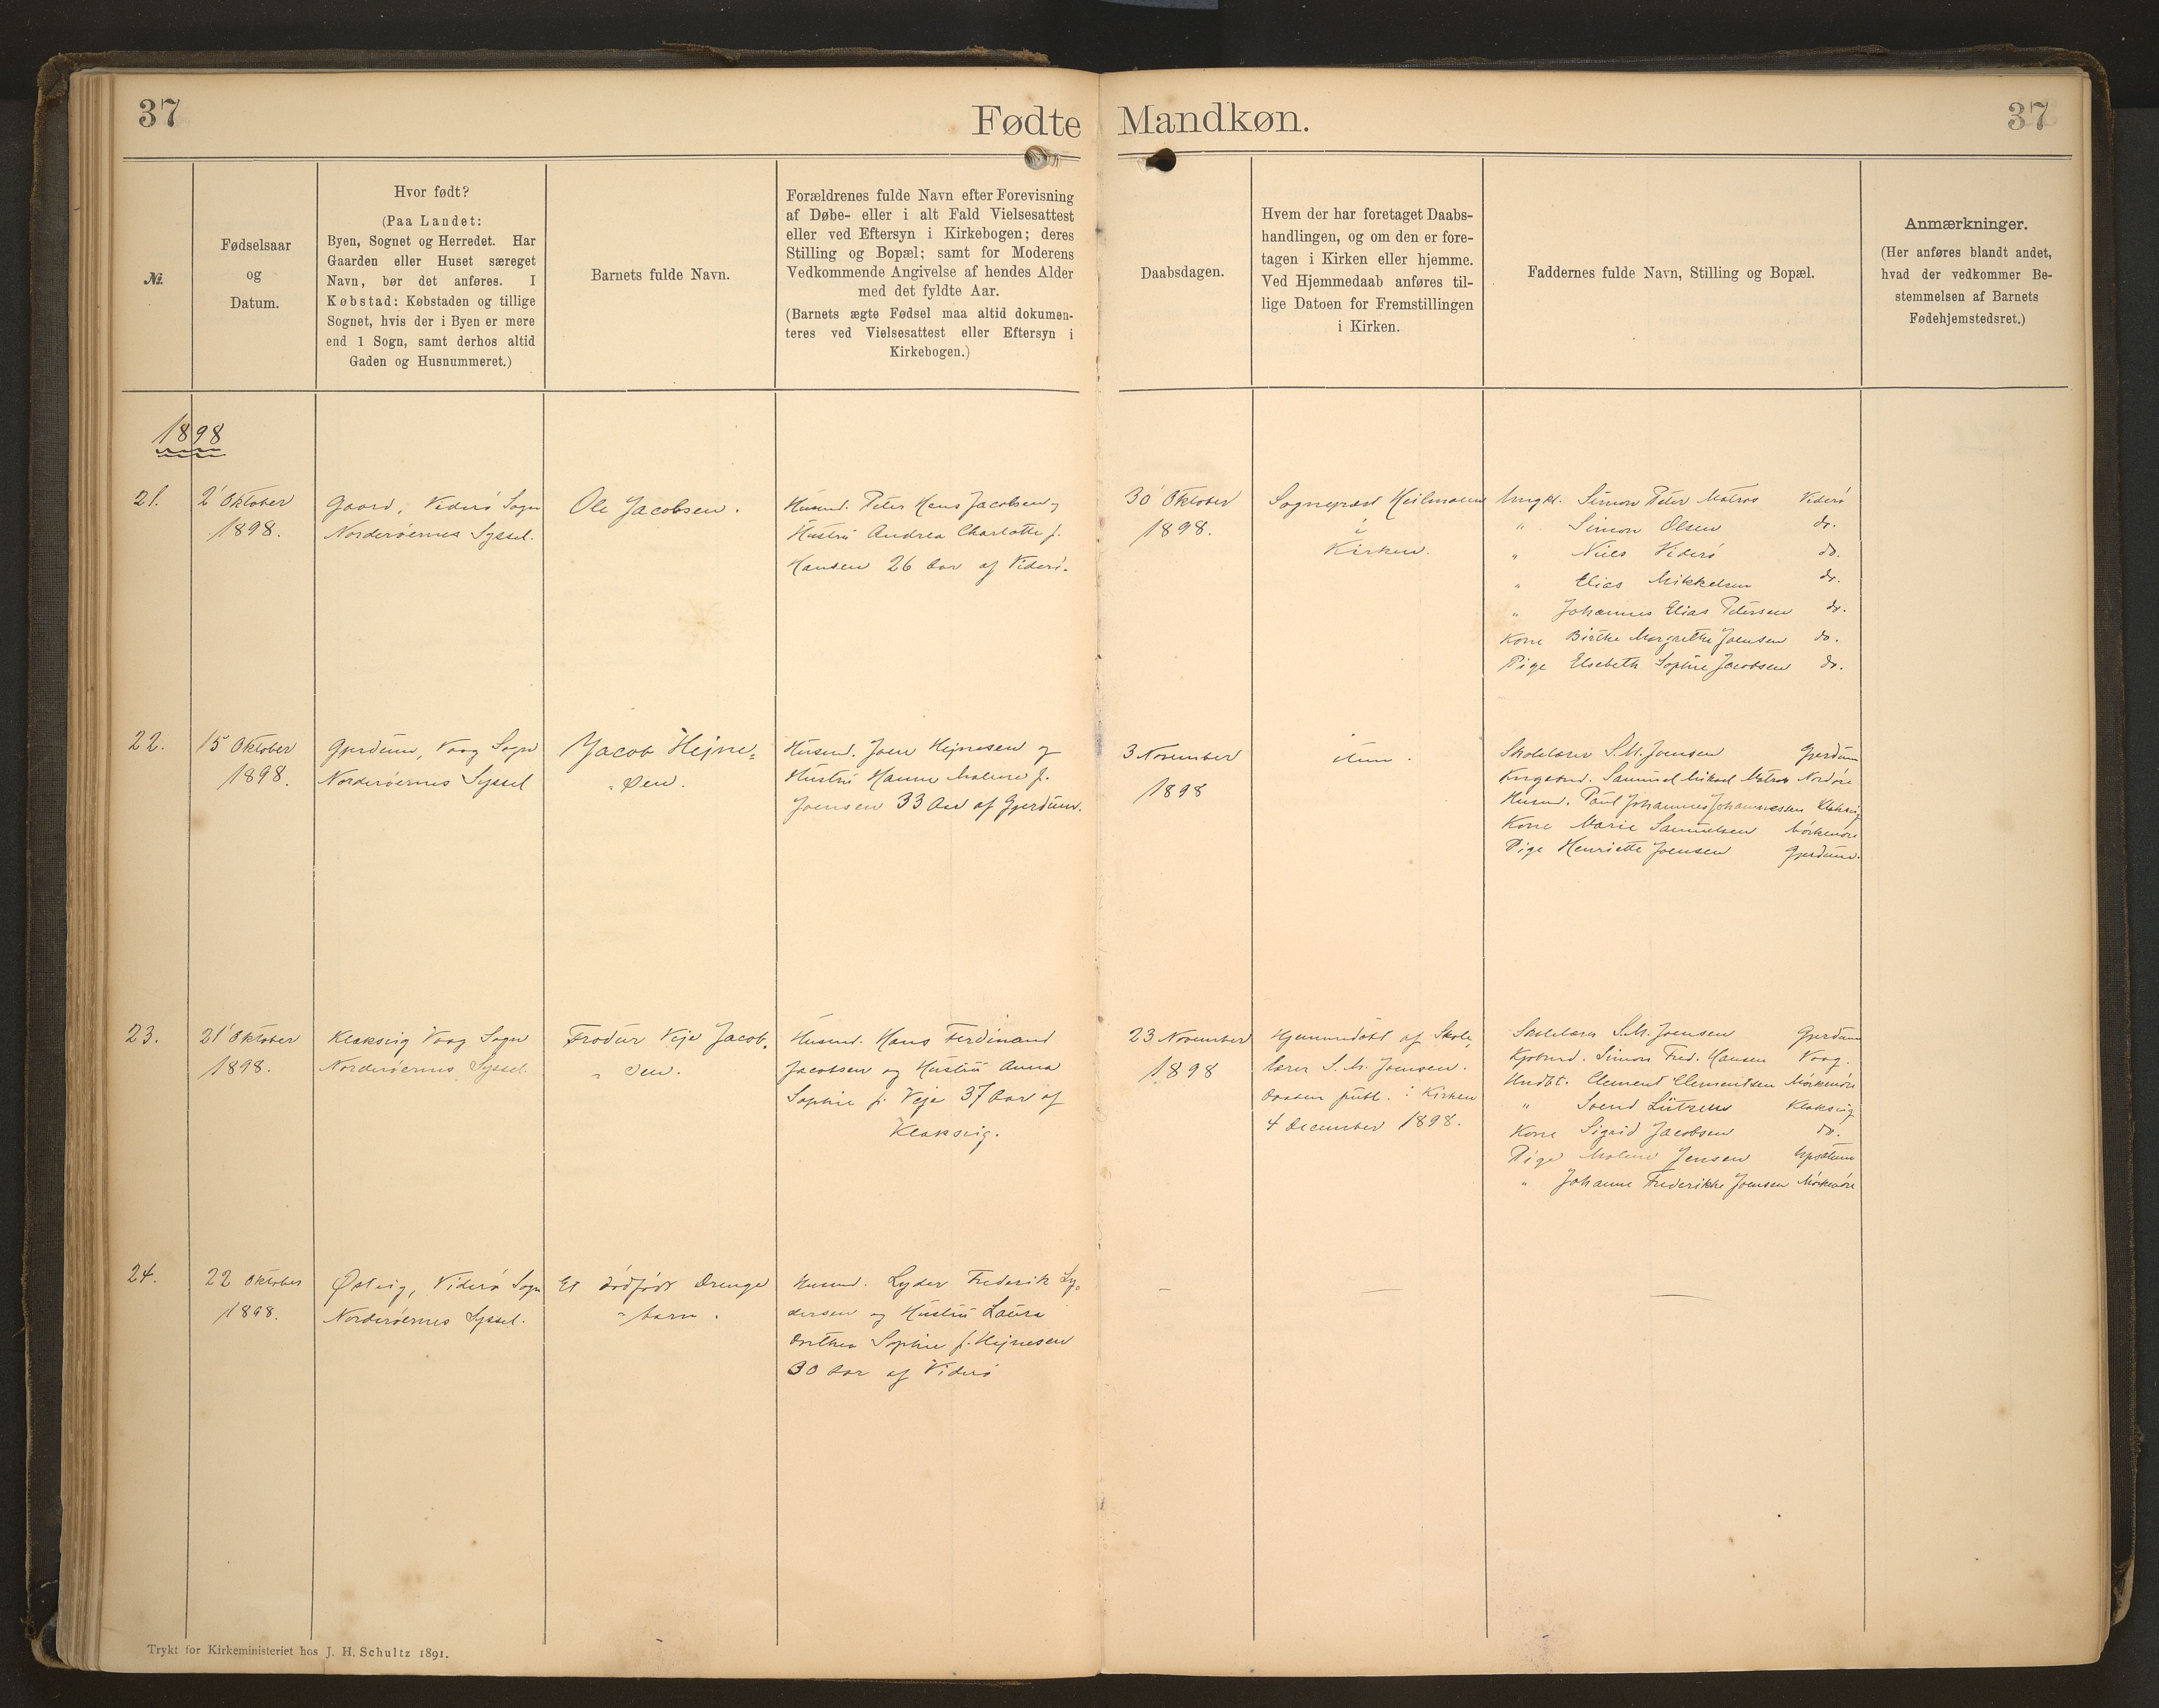 37
Fødte Mandkøn.
37
№
Fødselsaar
og
Datum.
Hvor født?
(Paa Landet:
Byen, Sognet og Herredet. Har
Gaarden eller Huset særeget
Navn, bør det anføres. I
Købstad: Købstaden og tillige
Sognet, hvis der i Byen er mere
end 1 Sogn, samt derhos altid
Gaden og Husnummeret.)
Barnets fulde Navn.
Forældrenes fulde Navn efter Forevisning
af Døbe- eller i alt Fald Vielsesattest
eller ved Eftersyn i Kirkebogen; deres
Stilling og Bopæl; samt for Moderens
Vedkommende Angivelse af hendes Alder
med det fyldte Aar.
(Barnets ægte Fødsel maa altid dokumen-
teres ved Vielsesattest eller Eftersyn i
Kirkebogen.)
Daabsdagen.
Hvem der har foretaget Daabs-
handlingen, og om den er fore-
tagen i Kirken eller hjemme.
Ved Hjemmedaab anføres til-
lige Datoen for Fremstillingen
i Kirken.
Faddernes fulde Navn, Stilling og Bopæl.
Anmærkninger.
(Her anføres blandt andet,
hvad der vedkommer Be-
stemmelsen af Barnets
Fødehjemstedsret.)
1898
21.
2' Oktober
1898.
Gaard, Viderø Sogn
Norderøernes Syssel.
Ole Jacobsen.
Husmd. Peter Hans Jacobsen og
Hustru Andrea Charlotte f.
Hansen 26 Aar af Viderø.
30' Oktober
1898.
Sognepræst Heilmann
i
Kirken.
Ungkl. Simon Peter Matras Viderø
" Simon Olsen do.
" Niels Viderø do.
" Elias Mikkelsen do.
" Johannes Elias Petersen do.
Kone Birthe Margrethe Joensen do.
Pige Elsebeth Sophie Jacobsen do.
22.
15 Oktober
1898.
Gjerdum, Vaag Sogn
Norderøernes Syssel
Jacob Hejne=
=sen.
Husmd. Joen Hejnesen og
Hustru Hanne Malene f.
Joensen 33 Aar af Gjerdum.
3 November
1898
item.
Skolelærer S. M. Joensen Gjerdum
Kngsbnd. Samuel Mikael Matras Nordøre
Husmd. Paul Johannes Johannessen Klaksvig
Kone Marie Samuelsen Mørkenøre
Pige Henriette Joensen Gjerdum.
23.
21' Oktober
1898.
Klaksvig Vaag Sogn
Norderøernes Syssel.
Frodur Veje Jacob=
= sen.
Husmd. Hans Ferdinand
Jacobsen og Hustru Anna
Sophie f. Veje 37 Aar af
Klaksvig.
23 November
1898
Hjemmedøbt af Skole=
lærer S. M. Joensen.
Daaben publ. i Kirken
4 December 1898.
Skolelærer S. M. Joensen Gjerdum
Kjøbmd. Simon Fred. Hansen Vaag.
Hndbt. Clement Clementsen Mørkenøre
" Svend Lützen Klaksvig
Kone Sigrid Jacobsen do.
Pige Malene Jensen Upsatum
" Johanne Frederikke Joensen Mørkenøre
24.
22 Oktober
1898.
Østvig, Viderø Sogn
Norderøernes Syssel.
Et dødfødt Drenge
=barn.
Husmd. Lyder Frederik Ly=
dersen og Hustru Laura
Dorthea Sophie f. Hejnesen
30 Aar af Viderø
–
—
—
Trykt for Kirkeministeriet hos J. H. Schultz 1891.